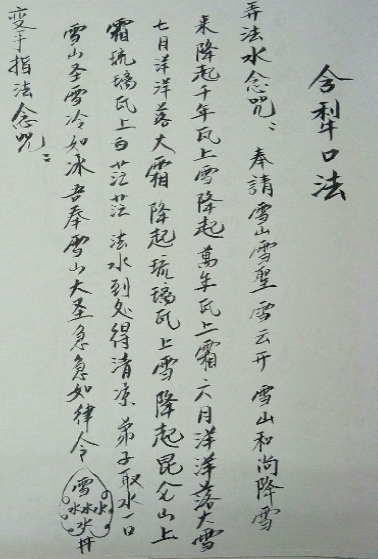 含犁口法
弄法水念咒：奉請雪山雪聖雪云开雪山和尚降雪
来降起千年瓦上雪降起萬年瓦上霜六月洋洋落大雪
七月洋洋落大霜降起琉璃瓦上雪降起昆仑山上
霜琉璃瓦上白茫茫法水到处得清凉弟子取水一口
雪山圣雪冷如冰吾奉雪山大圣急急如律令
雪水水水水井
变手指法念咒：